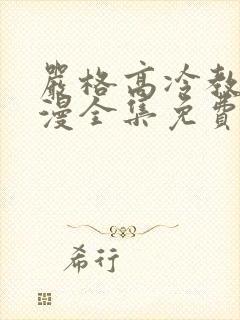 嚴格高冷教
漫全集免費
希行